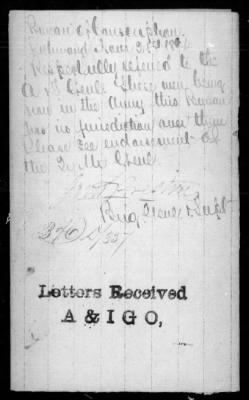 Bureau of Conscription
Richmond June 21st 186
Respectfully referred to the
A & I Genl. These men being
now in the Army this Bureau
has no jurisdiction over them
Please see endorsement of
the Q. M. Genl.
Brig Genl & Supt
Letters Received
A & I G O,